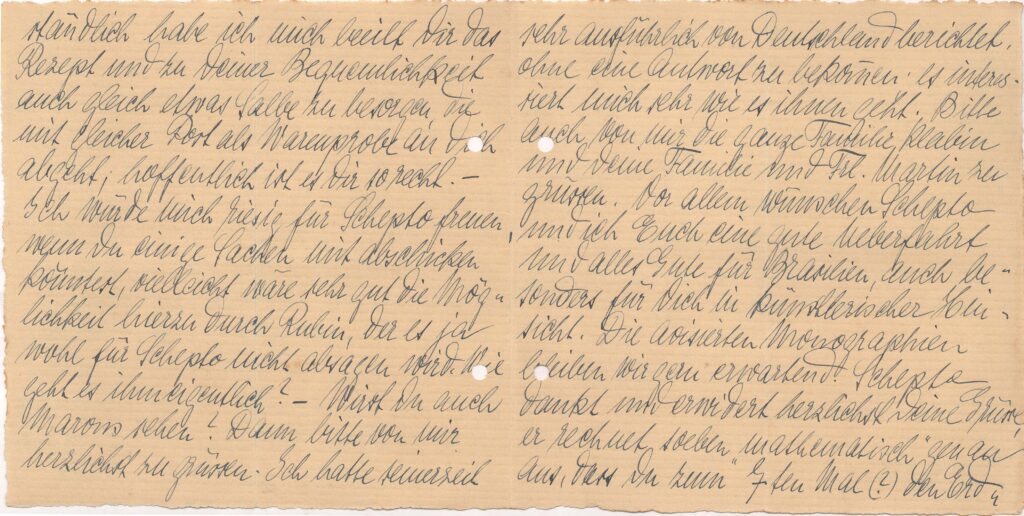 ständlich habe ich mich beeilt Dir das
Rezept und zu Deiner Bequemlichkeit
auch gleich etwas Salbe zu besorgen, die
mit gleicher Post als Warenprobe an Dich
abgeht; hoffentlich ist es Dir so recht. –
Ich würde mich riesig für Schepto freuen,
wenn Du einige Sachen mit abschicken
könntest, vielleicht wäre sehr gut die Mög-
lichkeit hierzu durch Rubin, der es ja
wohl für Schepto nicht absagen wird. Wie
geht es ihm eigentlich? – Wirst Du auch
Marows sehen? Dann bitte von mir
herzlichst zu grüssen. Ich hatte seinerzeit
sehr ausführlich von Deutschland berichtet,
ohne eine Antwort zu bekommen. es interes-
siert mich sehr wie es ihnen geht. Bitte
auch von mir die ganze Familie Klabin
und Deine Familie und Frl. Martin zu
grüssen. Vor allem wünschen Schepto
und ich Euch eine gute Ueberfahrt
und alles Gute für Brasilien, auch be-
sonders für Dich in künstlerischer Hin-
sicht. Die avisierten Monographien
bleiben wir gern erwartend. Schepto
dankt und erwidert herzlichst Deine Grüsse,
er rechnet soeben „mathematisch" genau
aus, dass Du zum 7ten Mal (?) den Erd-